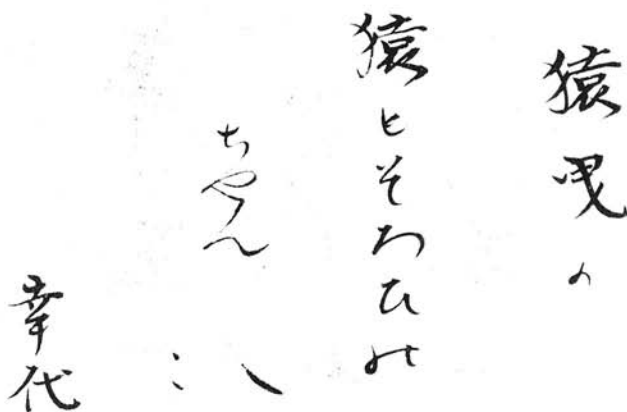 猿曳の
猿とそろひの
ちやん
こ
幸代